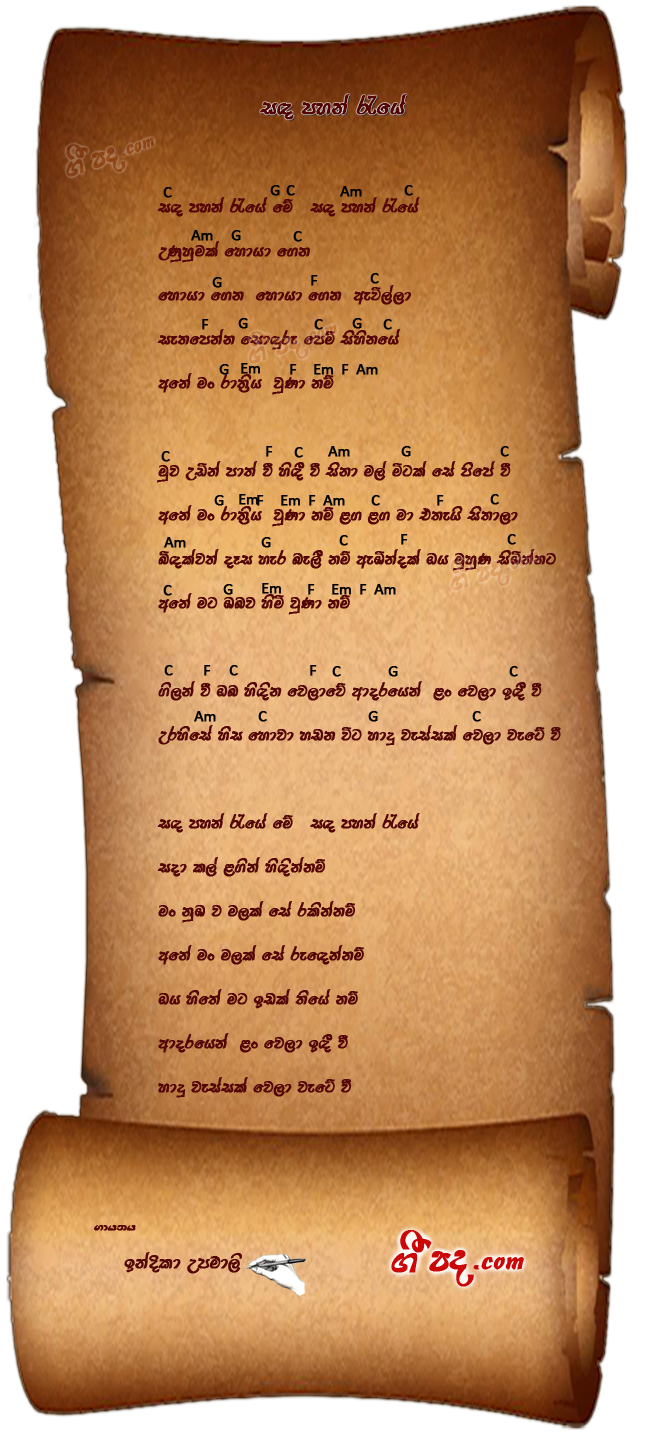 සඳ පහන් රැයේ
ගී පද.com
C G C Am C
සඳ පහන් රැයේ මේ සඳ පහන් රැයේ
Am G C
උණුහුමක් හොයා ගෙන
G F C
හොයා ගෙන හොයා ගෙන ඇවිල්ලා
F G C G C
සැනපෙන්න සොඳුරු පෙම් සිහිනයේ
G Em F Em F Am
අනේ මං රාත්‍රිය වුණා නම්
C F C Am G C
මුව උඩින් පාත් වී හිඳී වී සිනා මල් මිටක් සේ පිපේ වී
G Em F Em F Am C F C
අනේ මං රාත්‍රිය වුණා නම් ළඟ ළඟ මා එතැයි සිතාලා
Am G C F C
බිඳක්වත් දෑස හැර බැලී නම් ඇඹින්දක් ඔය මුහුණ සිඹින්නට
C G Em F Em F Am
අනේ මට ඔබව හිමි වුණා නම්
C F C F C G C
ගිලන් වී ඔබ හිඳින වෙලාවේ ආදරයෙන් ළං වෙලා ඉඳී වී
Am C G C
උරහිසේ හිස හොවා හඬන විට හාදු වැස්සක් වෙලා වැටේ වී
සඳ පහන් රැයේ මේ සඳ පහන් රැයේ
සදා කල් ළඟින් හිඳින්නම්
මං නුඹ ව මලක් සේ රකින්නම්
අනේ මං මලක් සේ රුඳෙන්නම්
ඔය හිතේ මට ඉඩක් තියේ නම්
ආදරයෙන් ළං වෙලා ඉඳී වී
හාදු වැස්සක් වෙලා වැටේ වී
ගායනය
ඉන්දිකා උපමාලි
ගී පද.com